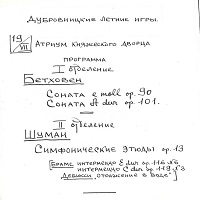 Дубровницкие летние игры.
19/VII Атриум Княжеского дворца
программа
I отделение
Бетховен
Соната e moll op. 90
Соната A dur op. 101.
II отделение
Шуман
Симфонические этюды op. 13
Брамс интермеццо E dur op. 116 №6
интермеццо C dur op. 119 №3
Дебюсси „Отражение в воде"